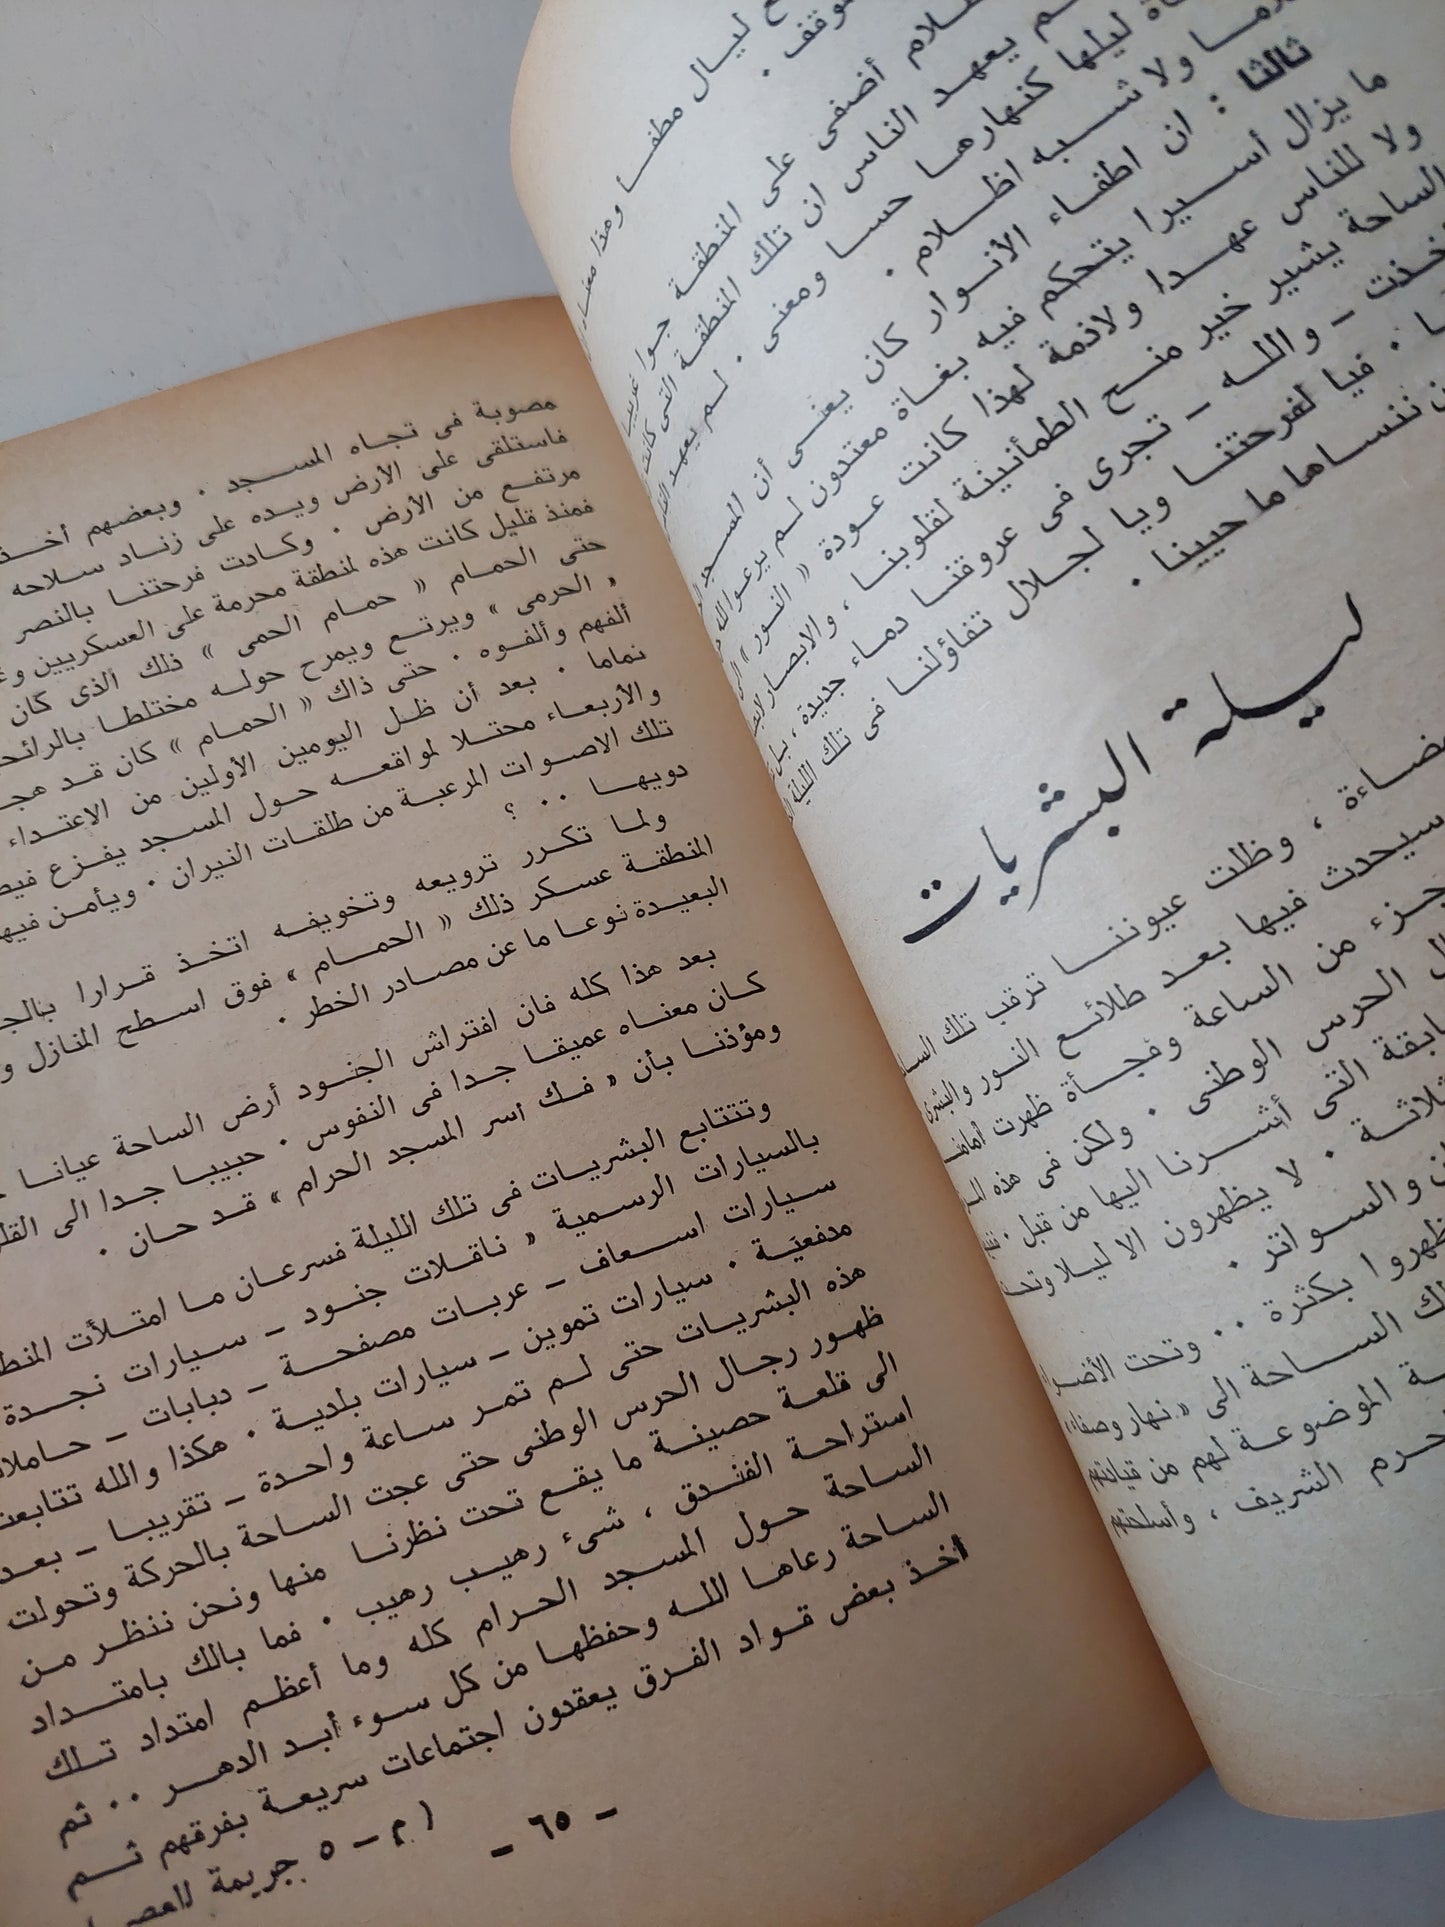 ليال مطفأ وهذا
موقف .
ظلام أضفى على المنطقة جوا غريبا
يعهد الناس ان تلك المنطقة التى كانت
ليلها كنهارها حسا ومعنى . لم يعهد
ولا شبه اظلام .
ثالثا : ان اطفاء الأنوار كان يعنى أن المسجد
ما يزال أسيرا يتحكم فيه بغاة معتدون لم يرعوا لله
ولا للناس عهدا ولاذمة لهذا كانت عودة « النور » الى
الساحة يشير خير منح الطمأنينة لقلوبنا ، والابصار
والله - تجرى فى عروقنا دماء جديدة ، بل
. فيا لفرحتنا ويا لجلال تفاؤلنا فى تلك الليلة
ننساها ما حيينا .
ليلة البشريات
، وظلت عيوننا ترقب تلك
سيحدث فيها بعد طلائع النور والبشرى
جزء من الساعة وفجأة ظهرت أمامنا
الحرس الوطنى . ولكن فى هذه
التى أشرنا اليها من قبل .
لا يظهرون الا ليلا وتحت
والسواتر .
ظهروا بكثرة .. وتحت
الساحة الى « نهار وصفاء »
الموضوعة لهم من قياداتهم
الشريف ، وأسلحتهم
مصوبة فى تجاه المسجد . وبعضهم أخذ
فاستلقى على الأرض ويده على زناد سلاحه
مرتفع من الأرض . وكادت فرحتنا بالنصر
فمنذ قليل كانت هذه لمنطقة محرمة على العسكريين
حتى الحمام « حمام الحمى » ذلك الذى كان
« الحرمى » ويرتع ويمرح حوله مختلطا
ألفهم وألفوه . حتى ذاك « الحمام » كان قد
نماما . بعد أن ظل اليومين الأولين من الاعتداء
والأربعاء محتلا لمواقعه حول المسجد يفزع
تلك الاصوات المرعبة من طلقات النيران . ويأمن
دويها .. ؟
ولما تكرر ترويعه وتخويفه اتخذ قرارا
المنطقة عسكر ذلك « الحمام » فوق اسطح المنازل
البعيدة نوعا ما عن مصادر الخطر .
بعد هذا كله فان افتراش الجنود أرض الساحة عيانا
كان معناه عميقا جدا فى النفوس . حبيبا جدا الى
ومؤذنا بأن « فك أسر المسجد الحرام » قد حان .
وتتتابع البشريات فى تلك الليلة فسرعان ما امتلأت
بالسيارات الرسمية « ناقلات جنود - سيارات نجدة
سيارات اسعاف - عربات مصفحة - دبابات - حاملات
مدفعية . سيارات تموين - سيارات بلدية . هكذا والله تتابعت
هذه البشريات حتى لم تمر ساعة واحدة - تقريبا - بعد
ظهور رجال الحرس الوطنى حتى عجت الساحة بالحركة وتحولت
الى قلعة حصينة ما يقع تحت نظرنا منها ونحن ننظر من
استراحة الفندق ، شىء رهيب رهيب . فما بالك بامتداد
الساحة حول المسجد الحرام كله وما أعظم امتداد تلك
الساحة رعاها الله وحفظها من كل سوء أبد الدهر .. ثم
أخذ بعض قواد الفرق يعقدون اجتماعات سريعة بفرقهم ثم
- ٦٥ -
( م - ٥ جريمة